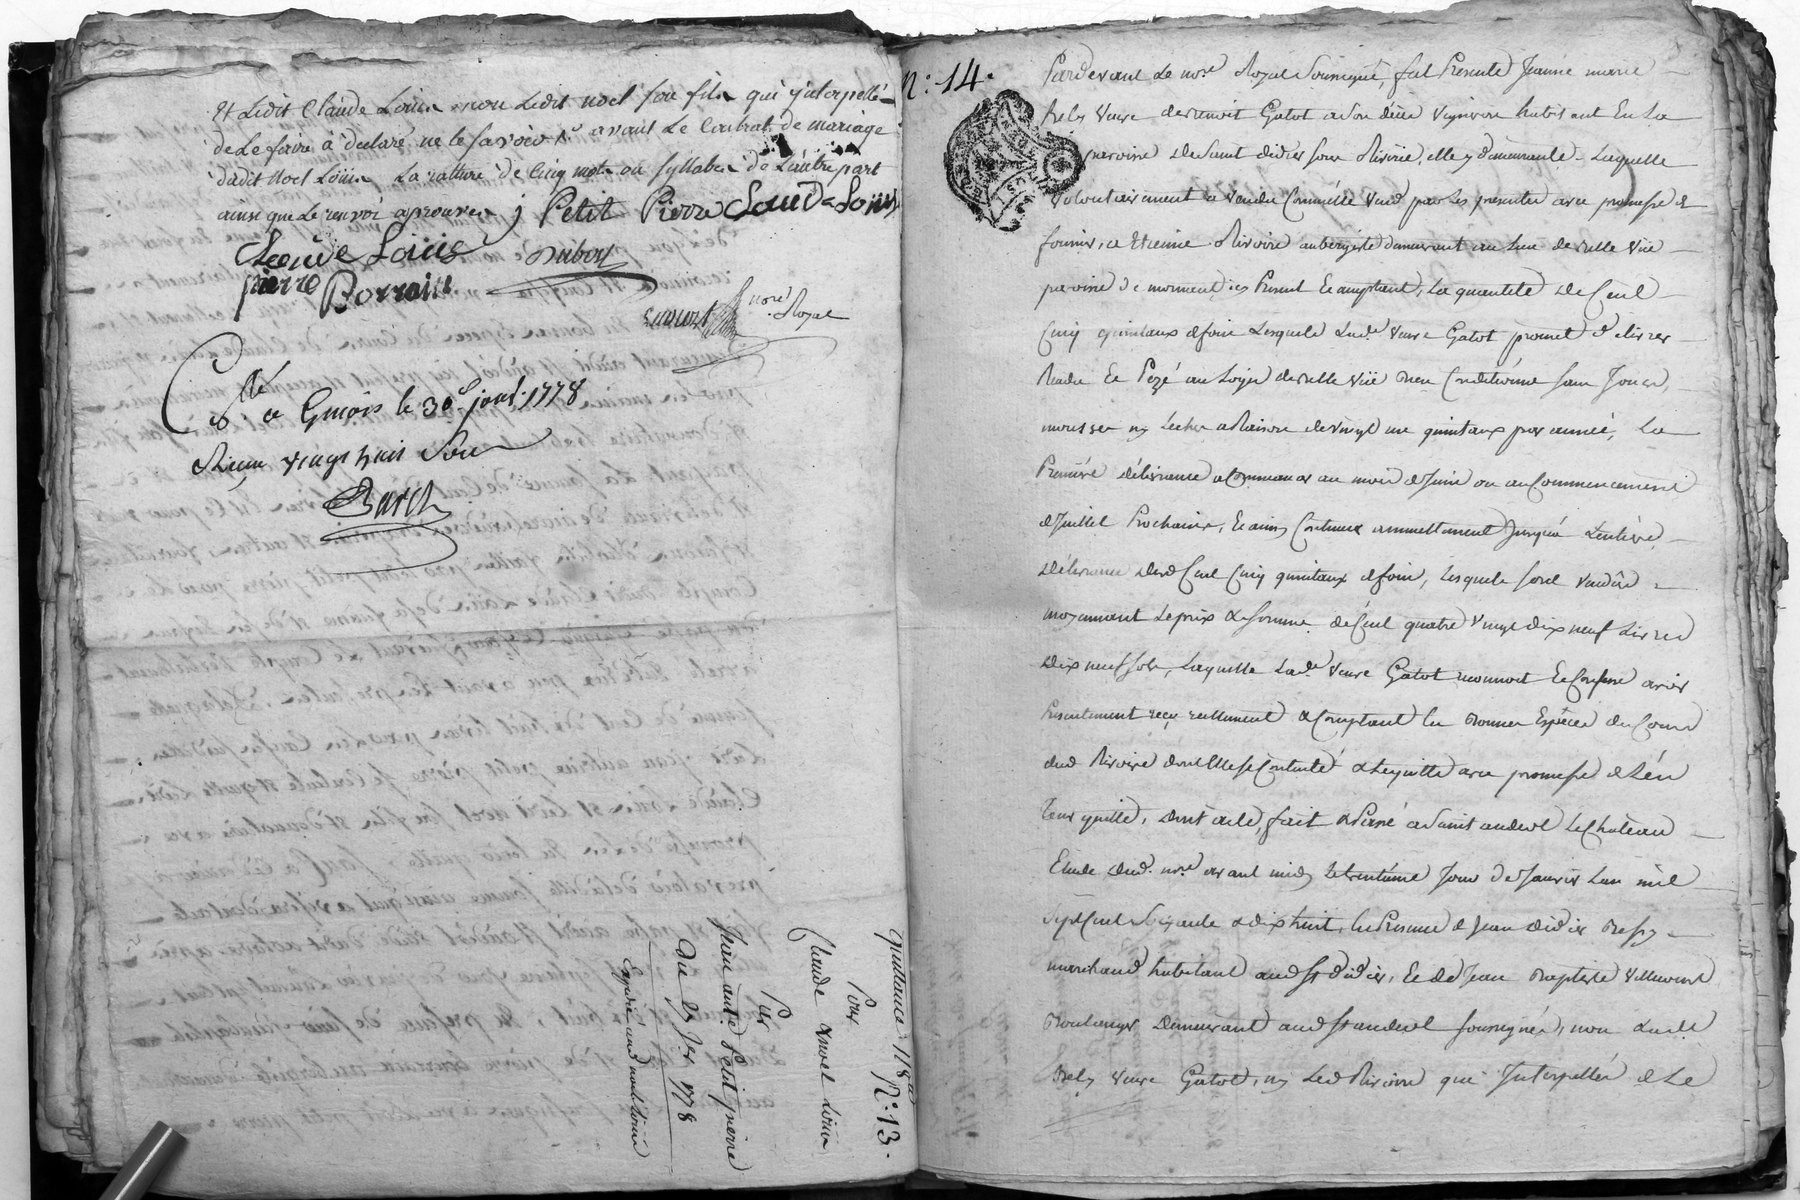 et Ledit Claude Louis non Ledit noel son fils qui jnterpellé
de Le faire à declaré ne le savoir avant Le Contrat de mariage
dudit Noel Louis La rature de Cinq mots ou syllabes de L'autre part
ainsi que Le renvoi aprouves j Petit Pierre Claude Louis
Cleaude Louis Dubost
pierre Borrain
nore Royal
Clé a Gmois le 30e janv. 1778
Reçu vingt huit sous
Barch
quittance 118ll N: 13.
Pour
Claude & noel Louis
Par
Jean ante. Petit pierre
Du 25 jer 1778
Expédié aud noel Louis
N: 14.
Pardevant Le nore Royal Soussigné, fut Presente Jeanne marie
Rely veuve de benoit Gatot a son déces vigneron habitant En La
paroisse De Saint didier sous Riverie, elle y demeurante Laquelle
volontairement a vendu Comme Elle vend par Les presentes avec promesse de
fournir, a Etienne Rivoire aubergiste demeurant au Lieu de belle vüe
paroisse de mornant, icy Present & acceptant, La quantité De Cent
Cinq quintaux de foin Lesquels Lade. veuve Gatot promet de Livrer
Rendu Et Pezé au Logis de belle vüe Bien Conditionné sans Joncs,
mousse ny Leches a Raison de vingt un quintaux par année, La
Premiere délivrance a Commencer au mois de Juin ou au Commencement
de Juillet Prochain, Et ainsy Continuer annuellement Jusqu'a L'entiere
Délivrance Desd Cent Cinq quintaux de foin, Lesquels sont vendus
moyennant Le prix & somme de Cent quatre vingt dix neuf Livres
dix neuf sols, Laquelle Lade. veuve Gatot reconnoit Et Confesse avoir
Presentement reçu reellement & Comptant En Bonnes Espèces du Cours
dud Rivoire dont Elle se Contente & Le quitte avec promesse de L'en
tenir quitte, dont acte, fait & Passé a Saint andeol Le Chateau
Etude dud. nore avant midy Le trentième jour de Janvier L'an mil
Sept Cent Soixante & dix huit, En Presence de Jean Didier Ressy
marchand habitant aud St didier, Et de Jean Baptiste villemont
Boulanger demeurant aud St andeol soussignés, non Ladte
Rely veuve Gatot, ny Led Rivoire qui Interpellés de Le